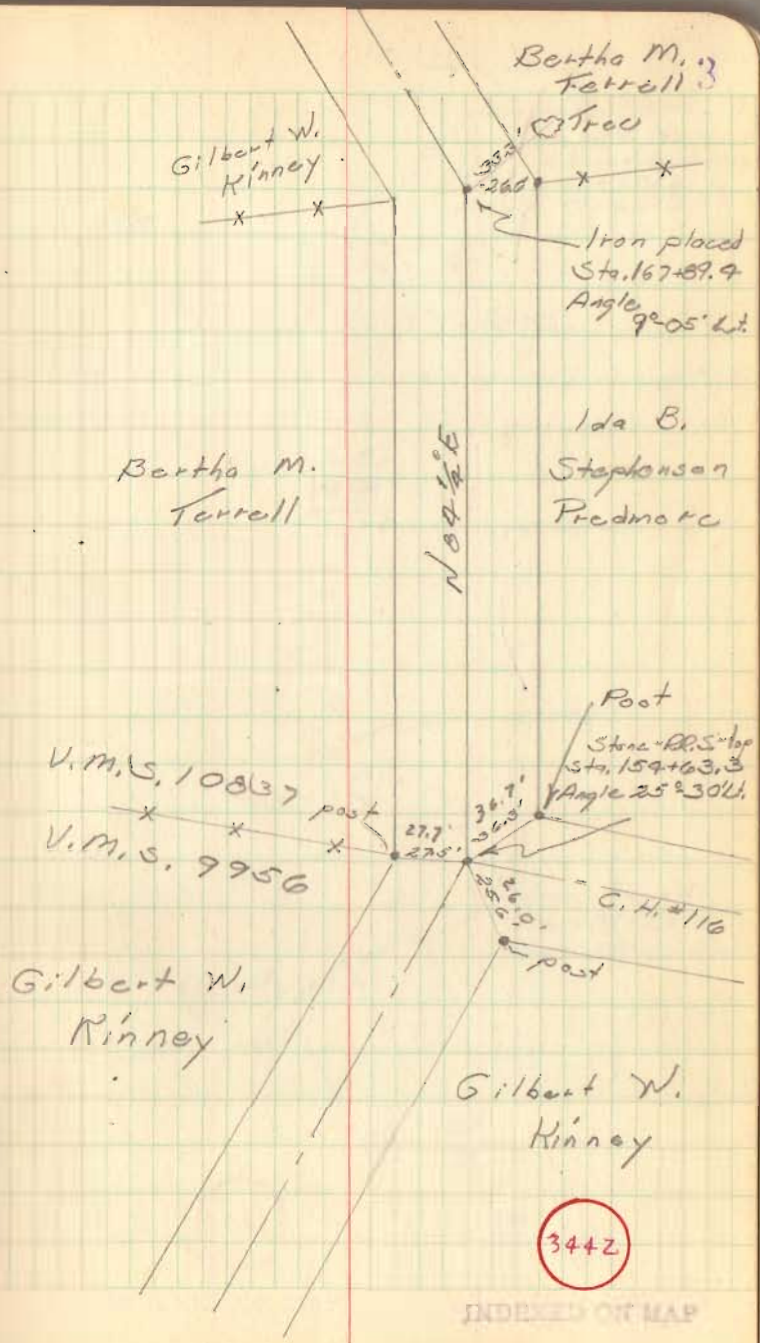 Bertha M.
Terrell
3
Tree
Gilbert W.
Kinney
33.3'
26.0'
Iron placed
Sta. 167+89.4
Angle 9°-05' Lt.
Ida B.
Stephenson
Predmore
Bertha M.
Terrell
N 84 1/4° E
Post
Stone "R.R.S" top
Sta. 154+63.3
Angle 25°30' Lt.
V.M.S. 10837
post
V.M.S. 9956
27.7'
27.5'
36.7'
36.3'
26.0'
25.6'
C.H. #116
post
Gilbert W.
Kinney
Gilbert W.
Kinney
3442
INDEXED ON MAP